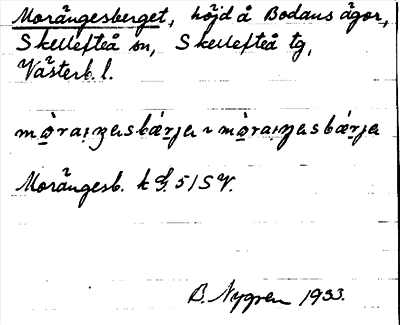 Morängesberget, höjd å Bodans ägor,
Skellefteå sn, Skellefteå tg,
Västerb. l.
mo̱raiŋasbárja ~ mo̱raiŋasbárja
Morängesb. k G. 51 S V.
B. Nygren 1933.